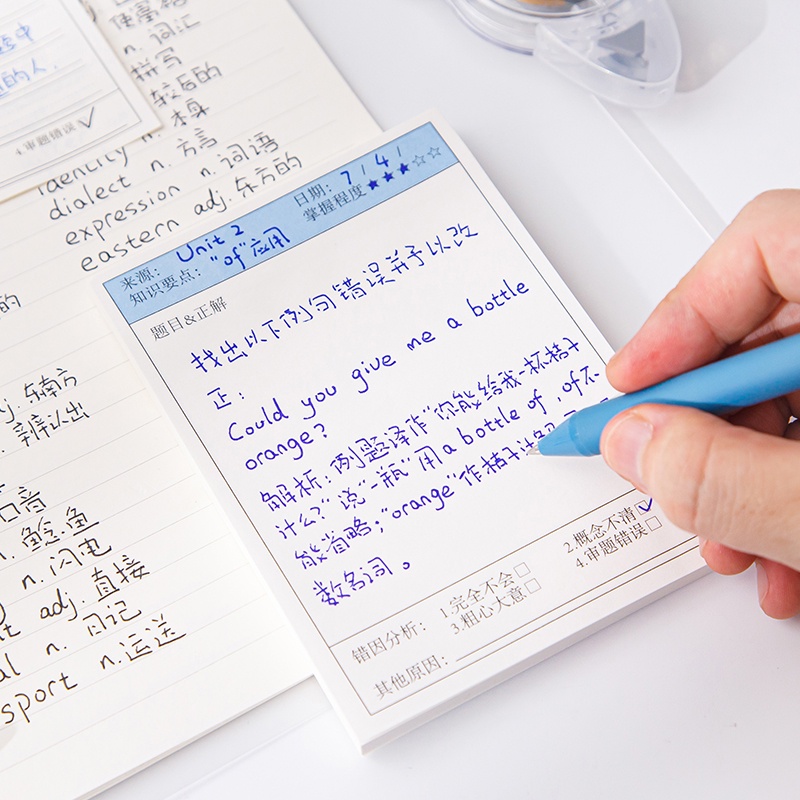 中
的人.
4.审题错误 ✓
n. 词汇
拼写
较后的
n. 本身
identity n.
dialect n. 方言
expression n. 词语
eastern adj. 东方的
的
j. 东南方
. 辨认出
n. 鲶鱼
n. 闪电
adj. 直接
al n. 日记
sport n. 运送
来源: Unit 2
日期: 7 / 4 /
知识要点: "of"应用
掌握程度 ★★★☆☆
题目&正解
找出以下例句错误并予以改
正:
Could you give me a bottle
orange?
解析: 例题译作"你能给我一杯桔子
什么?" 说"一瓶"用 a bottle of , of不
能省略; "orange"作桔子汁
数名词。
错因分析: 1.完全不会□ 2.概念不清☑
3.粗心大意□ 4.审题错误□
其他原因: